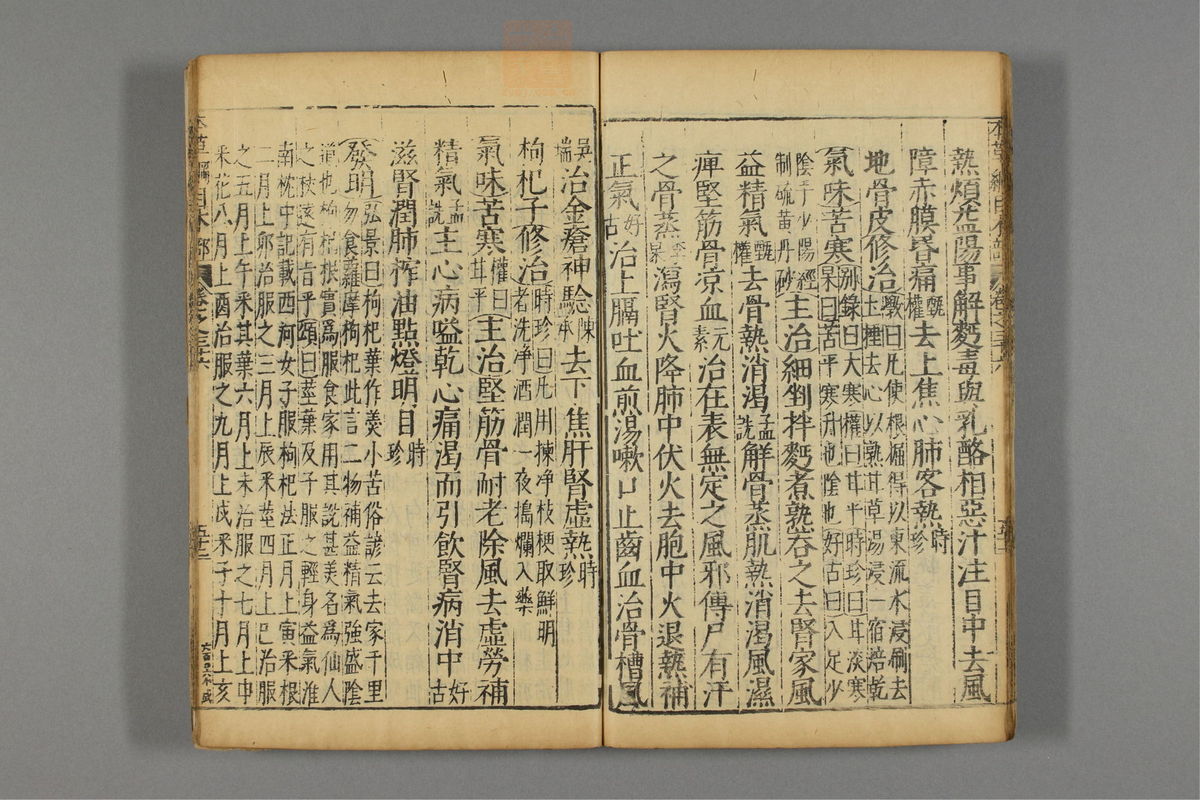 熱煩益陽事解麪毒與乳酪相惡汁注目中去風
障赤膜昏痛甄權去上焦心肺客熱時珍
地骨皮修治斆曰凡使根掘得以東流水浸刷去土捶去心以熟甘草湯浸一宿焙乾
氣味苦寒別錄曰大寒權曰甘平時珍曰甘淡寒杲曰苦平寒升也陰也好古曰入足少
陰手少陽經制硫黃丹砂主治細剉拌麪煮熟吞之去腎家風
益精氣甄權去骨熱消渴孟詵解骨蒸肌熱消渴風濕
痺堅筋骨凉血元素治在表無定之風邪傳尸有汗
之骨蒸李杲瀉腎火降肺中伏火去胞中火退熱補
正氣好古治上膈吐血煎湯嗽口止齒血治骨槽風
吳瑞治金瘡神驗陳承去下焦肝腎虛熱時珍
枸杞子修治時珍曰凡用揀净枝梗取鮮明者洗净酒潤一夜搗爛入藥
氣味苦寒權曰甘平主治堅筋骨耐老除風去虛勞補
精氣孟詵主心病嗌乾心痛渴而引飲腎病消中好古
滋腎潤肺榨油點燈明目時珍
發明弘景曰枸杞葉作羹小苦俗諺云去家千里
勿食蘿摩枸杞此言二物補益精氣強盛陰
道也枸杞根實爲服食家用其說甚美名爲仙人
之杖遠有旨乎頌曰莖葉及子服之輕身益氣淮
南枕中記載西河女子服枸杞法正月上寅采根
二月上卯治服之三月上辰采莖四月上巳治服
之五月上午采其葉六月上未治服之七月上申
采花八月上酉治服之九月上戌采子十月上亥
本草綱目木部
卷之三十六
五十二